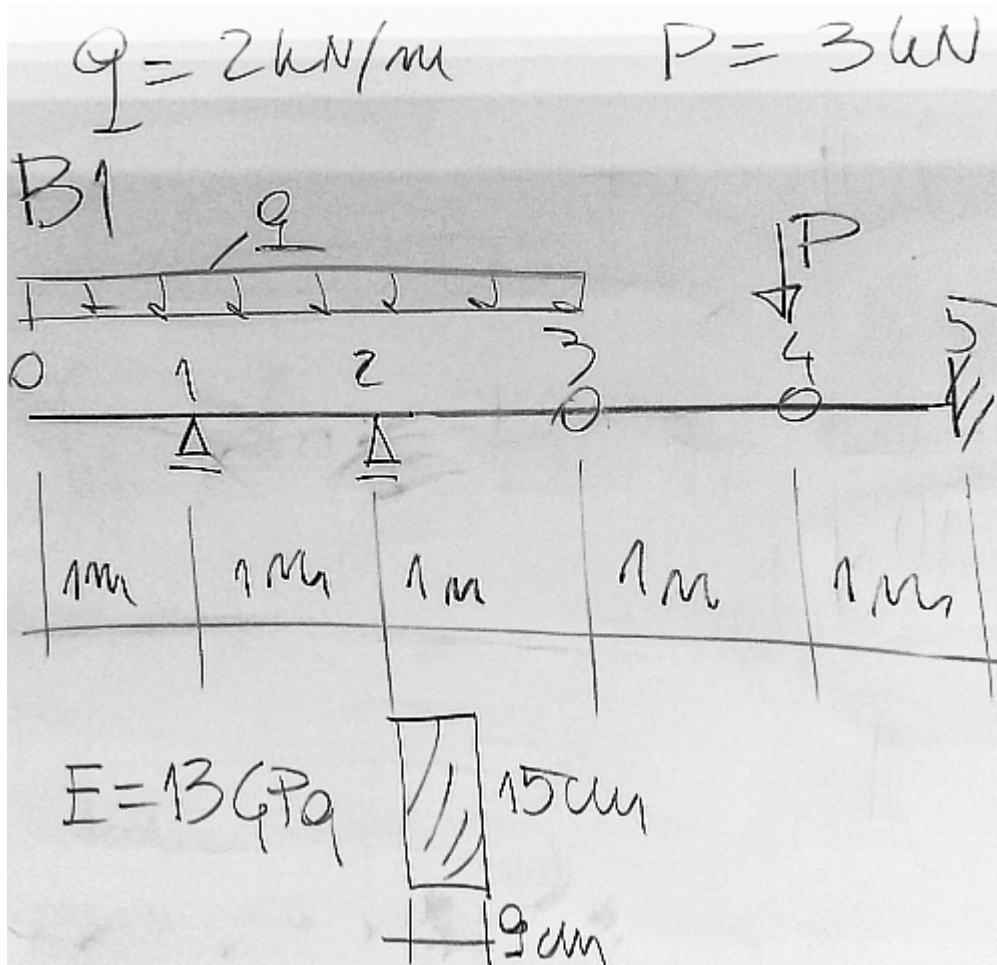 q = 2kN/m P = 3kN
B1
q
P
0 1 2 3 4 5
1m 1m 1m 1m 1m
E = 13GPa
15cm
9cm